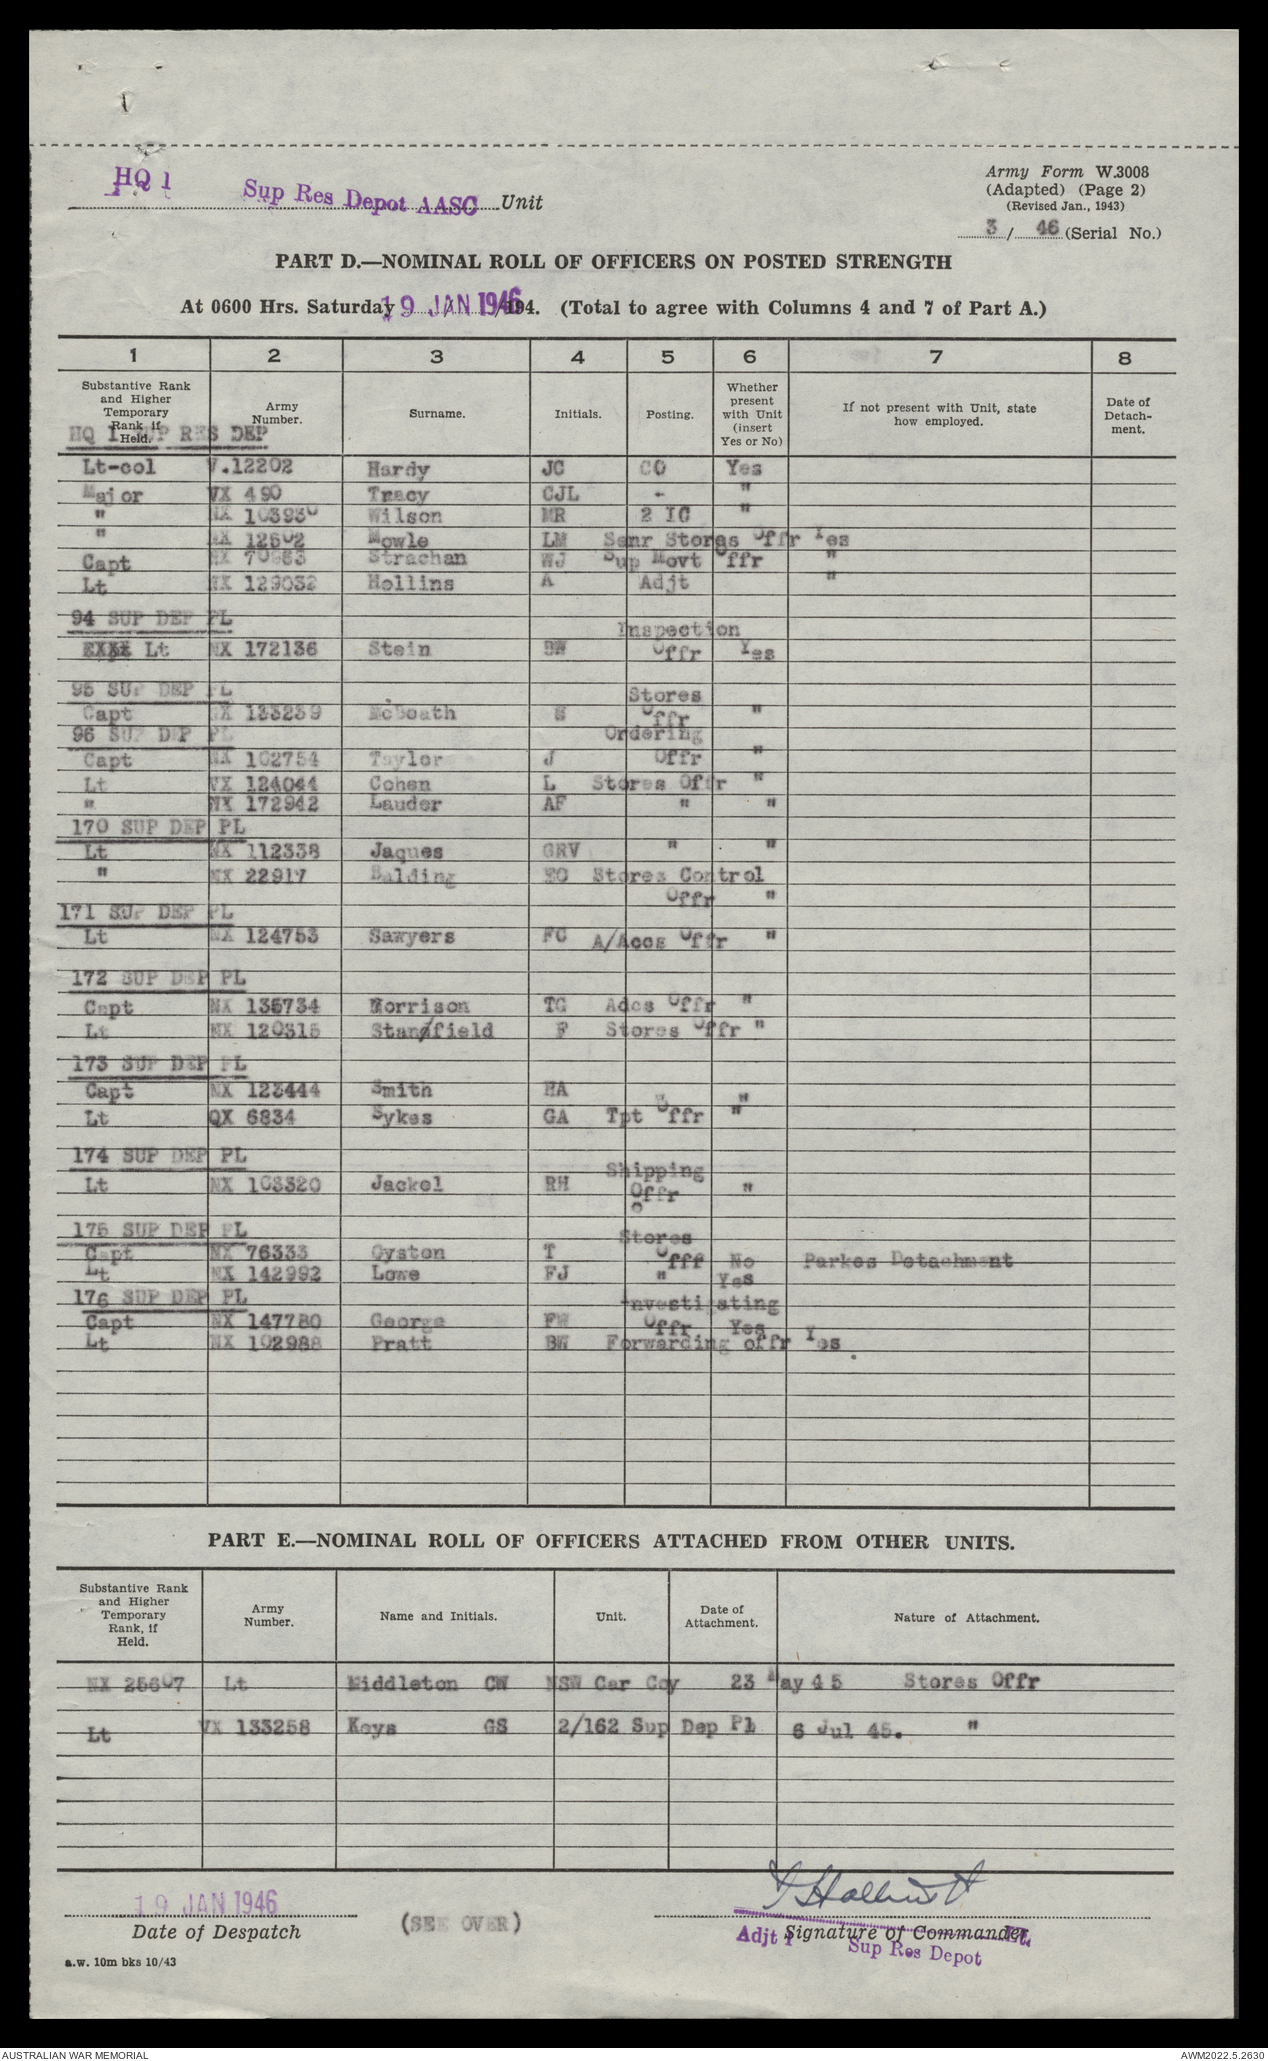 HQ 1 Sup Res Depot AASC Unit
Army Form W.3008
(Adapted) (Page 2)
(Revised Jan., 1943)
3 / 46 (Serial No.)
PART D.—NOMINAL ROLL OF OFFICERS ON POSTED STRENGTH
At 0600 Hrs. Saturday 19 JAN 1946 /194. (Total to agree with Columns 4 and 7 of Part A.)
1 2 3 4 5 6 7 8
Substantive Rank and Higher Temporary Rank if Held. Army Number. Surname. Initials. Posting. Whether present with Unit (insert Yes or No) If not present with Unit, state how employed. Date of Detach-ment.
HQ 1 SUP RES DEP
Lt-col V.12202 Hardy JC CO Yes
Major VX 490 Tracy CJL - "
" NX 103930 Wilson MR 2 IC "
" NX 12602 Mowle LM Senr Stores Offr Yes
Capt NX 70953 Strachan WJ Sup Movt Offr "
Lt NX 129032 Hollins A Adjt "
94 SUP DEP PL
Inspection
Lt NX 172136 Stein BW Offr Yes
95 SUP DEP PL
Stores
Capt NX 133239 McBeath S Offr "
96 SUP DEP PL Ordering
Capt NX 102754 Taylor J Offr "
Lt VX 124044 Cohen L Stores Offr "
" NX 172942 Lauder AF " "
170 SUP DEP PL
Lt NX 112338 Jaques GRV " "
" NX 22917 Balding EO Stores Control
Offr "
171 SUP DEP PL
Lt NX 124753 Sawyers FC A/Accs Offr "
172 SUP DEP PL
Capt NX 135734 Morrison TG Accs Offr "
Lt NX 120315 Stansfield F Stores Offr "
173 SUP DEP PL
Capt NX 123444 Smith HA "
Lt QX 6834 Sykes GA Tpt Offr "
174 SUP DEP PL
Shipping
Lt NX 103320 Jackel RH Offr "
175 SUP DEP PL
Stores
Capt NX 76333 Oyston T Offr No Parkes Detachment
Lt NX 142992 Lowe FJ " Yes
176 SUP DEP PL Investigating
Capt NX 147780 George FW Offr Yes
Lt NX 102988 Pratt BW Forwarding offr Yes.
PART E.—NOMINAL ROLL OF OFFICERS ATTACHED FROM OTHER UNITS.
Substantive Rank and Higher Temporary Rank, if Held. Army Number. Name and Initials. Unit. Date of Attachment. Nature of Attachment.
NX 25607 Lt Middleton CW NSW Car Coy 23 May 45 Stores Offr
Lt VX 133258 Keys GS 2/162 Sup Dep Pl 6 Jul 45. "
19 JAN 1946
Date of Despatch
(SEE OVER)
Signature of Commander
Adjt 1 Lt.
Sup Res Depot
a.w. 10m bks 10/43
AUSTRALIAN WAR MEMORIAL
AWM2022.5.2630